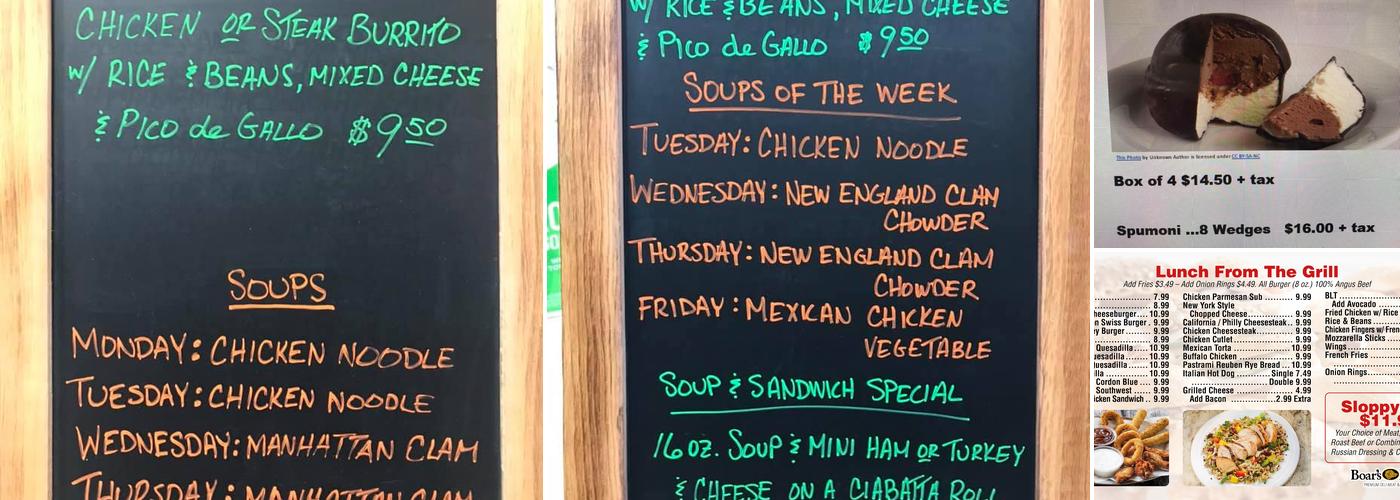 CHICKEN OR STEAK BURRITO
W/ RICE & BEANS, MIXED CHEESE
& PICO de GALLO $9.50
SOUPS
MONDAY: CHICKEN NOODLE
TUESDAY: CHICKEN NOODLE
WEDNESDAY: MANHATTAN CLAM
THURSDAY: MANHATTAN CLAM
W/ RICE & BEANS, MIXED CHEESE
& PICO de GALLO $9.50
SOUPS OF THE WEEK
TUESDAY: CHICKEN NOODLE
WEDNESDAY: NEW ENGLAND CLAM
CHOWDER
THURSDAY: NEW ENGLAND CLAM
CHOWDER
FRIDAY: MEXICAN CHICKEN
VEGETABLE
SOUP & SANDWICH SPECIAL
16 OZ. SOUP & MINI HAM OR TURKEY
& CHEESE ON A CIABATTA ROLL
This Photo by Unknown Author is licensed under CC BY-SA-NC
Box of 4 $14.50 + tax
Spumoni ...8 Wedges $16.00 + tax
Lunch From The Grill
Add Fries $3.49 – Add Onion Rings $4.49. All Burger (8 oz.) 100% Angus Beef
7.99
8.99
heeseburger 10.99
n Swiss Burger 9.99
y Burger 9.99
8.99
Quesadilla 10.99
uesadilla 10.99
lla 10.99
Cordon Bleu 9.99
Southwest 9.99
icken Sandwich 9.99
Chicken Parmesan Sub 9.99
New York Style
Chopped Cheese 9.99
California / Philly Cheesesteak 9.99
Chicken Cheesesteak 9.99
Chicken Cutlet 9.99
Mexican Torta 10.99
Buffalo Chicken 9.99
Pastrami Reuben Rye Bread 10.99
Italian Hot Dog Single 7.49
Double 9.99
Grilled Cheese 4.99
Add Bacon 2.99 Extra
BLT
Add Avocado
Fried Chicken w/ Rice
Rice & Beans
Chicken Fingers w/ Fren
Mozzarella Sticks
Wings
French Fries
Onion Rings
Sloppy
$11.
Your Choice of Meat,
Roast Beef or Combin
Russian Dressing & C
Boar's